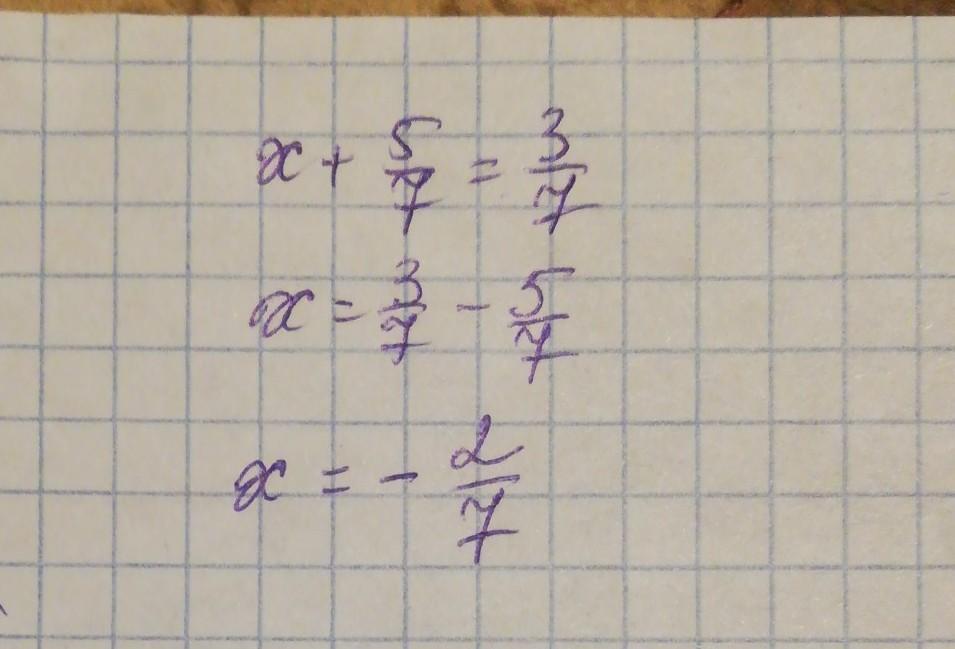 x + 5/7 = 3/7
x = 3/7 - 5/7
x = - 2/7